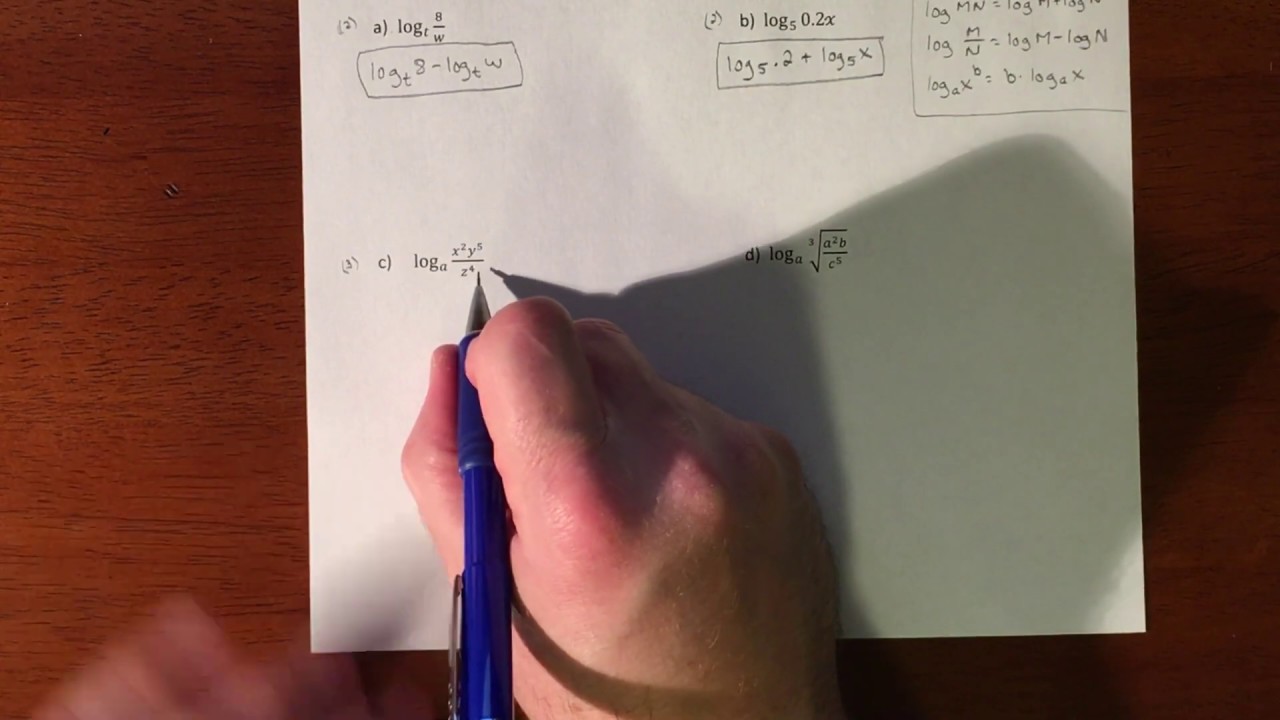 (2) a) logₜ 8/w
logₜ 8 - logₜ w
(2) b) log₅ 0.2x
log₅ .2 + log₅ x
log MN = log M + log N
log M/N = log M - log N
logₐ xᵇ = b · logₐ x
(3) c) logₐ x²y⁵/z⁴
d) logₐ ³√(a²b/c⁵)